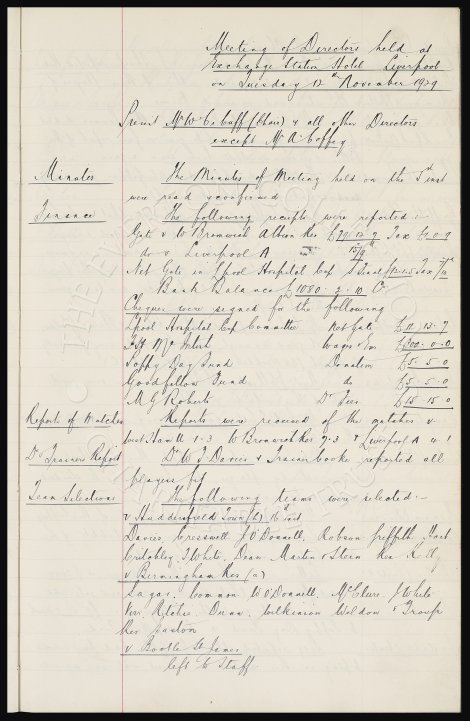 Meeting of Directors held at
Exchange Station Hotel Liverpool
on Tuesday 12th November 1929
Present Mr W. C. Cuff (Chair) & all other Directors
except Mr A. Coffey
Minutes The Minutes of Meeting held on the 5th inst
were read & confirmed
Finance The following receipts were reported :-
Gate v W Bromwich Albion Res Tax
do v Liverpool A
Nett Gate in L'pool Hospital Cup Tax
Bank Balance £1080. 9. 10 Cr
Cheques were signed for the following
L'pool Hospital Cup Committee Nett Gate £11. 13. 7
Wages £200. 0. 0
Poppy Day Fund Donation £5. 5. 0
Goodfellow Fund do £5. 5. 0
M. G. Roberts Dr Fees £15. 15. 0
Report of Matches Reports were received of the matches v
West Ham 1-3 W Bromwich Res & Liverpool A
Dr & Trainers Report Dr W J Davies & Trainer Cooke reported all
players fit
Team Selections The following teams were selected :-
v Huddersfield Town (h) 16th inst
Davies, Cresswell & O'Donnell, Robson Griffiths Hart
Critchley, White, Dean Martin & Stein Res
v Birmingham Res (a)
Sagar Common W O'Donnell, McClure, White
Ritchie, Dunn, Wilkinson Weldon & Troup
Res
v Bootle St James
left to Staff
THE EVERTON